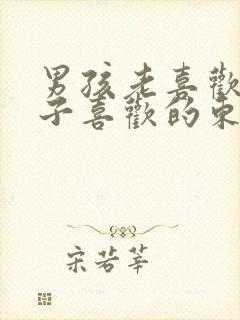 男孩老喜歡
子喜歡的東
宋若莘